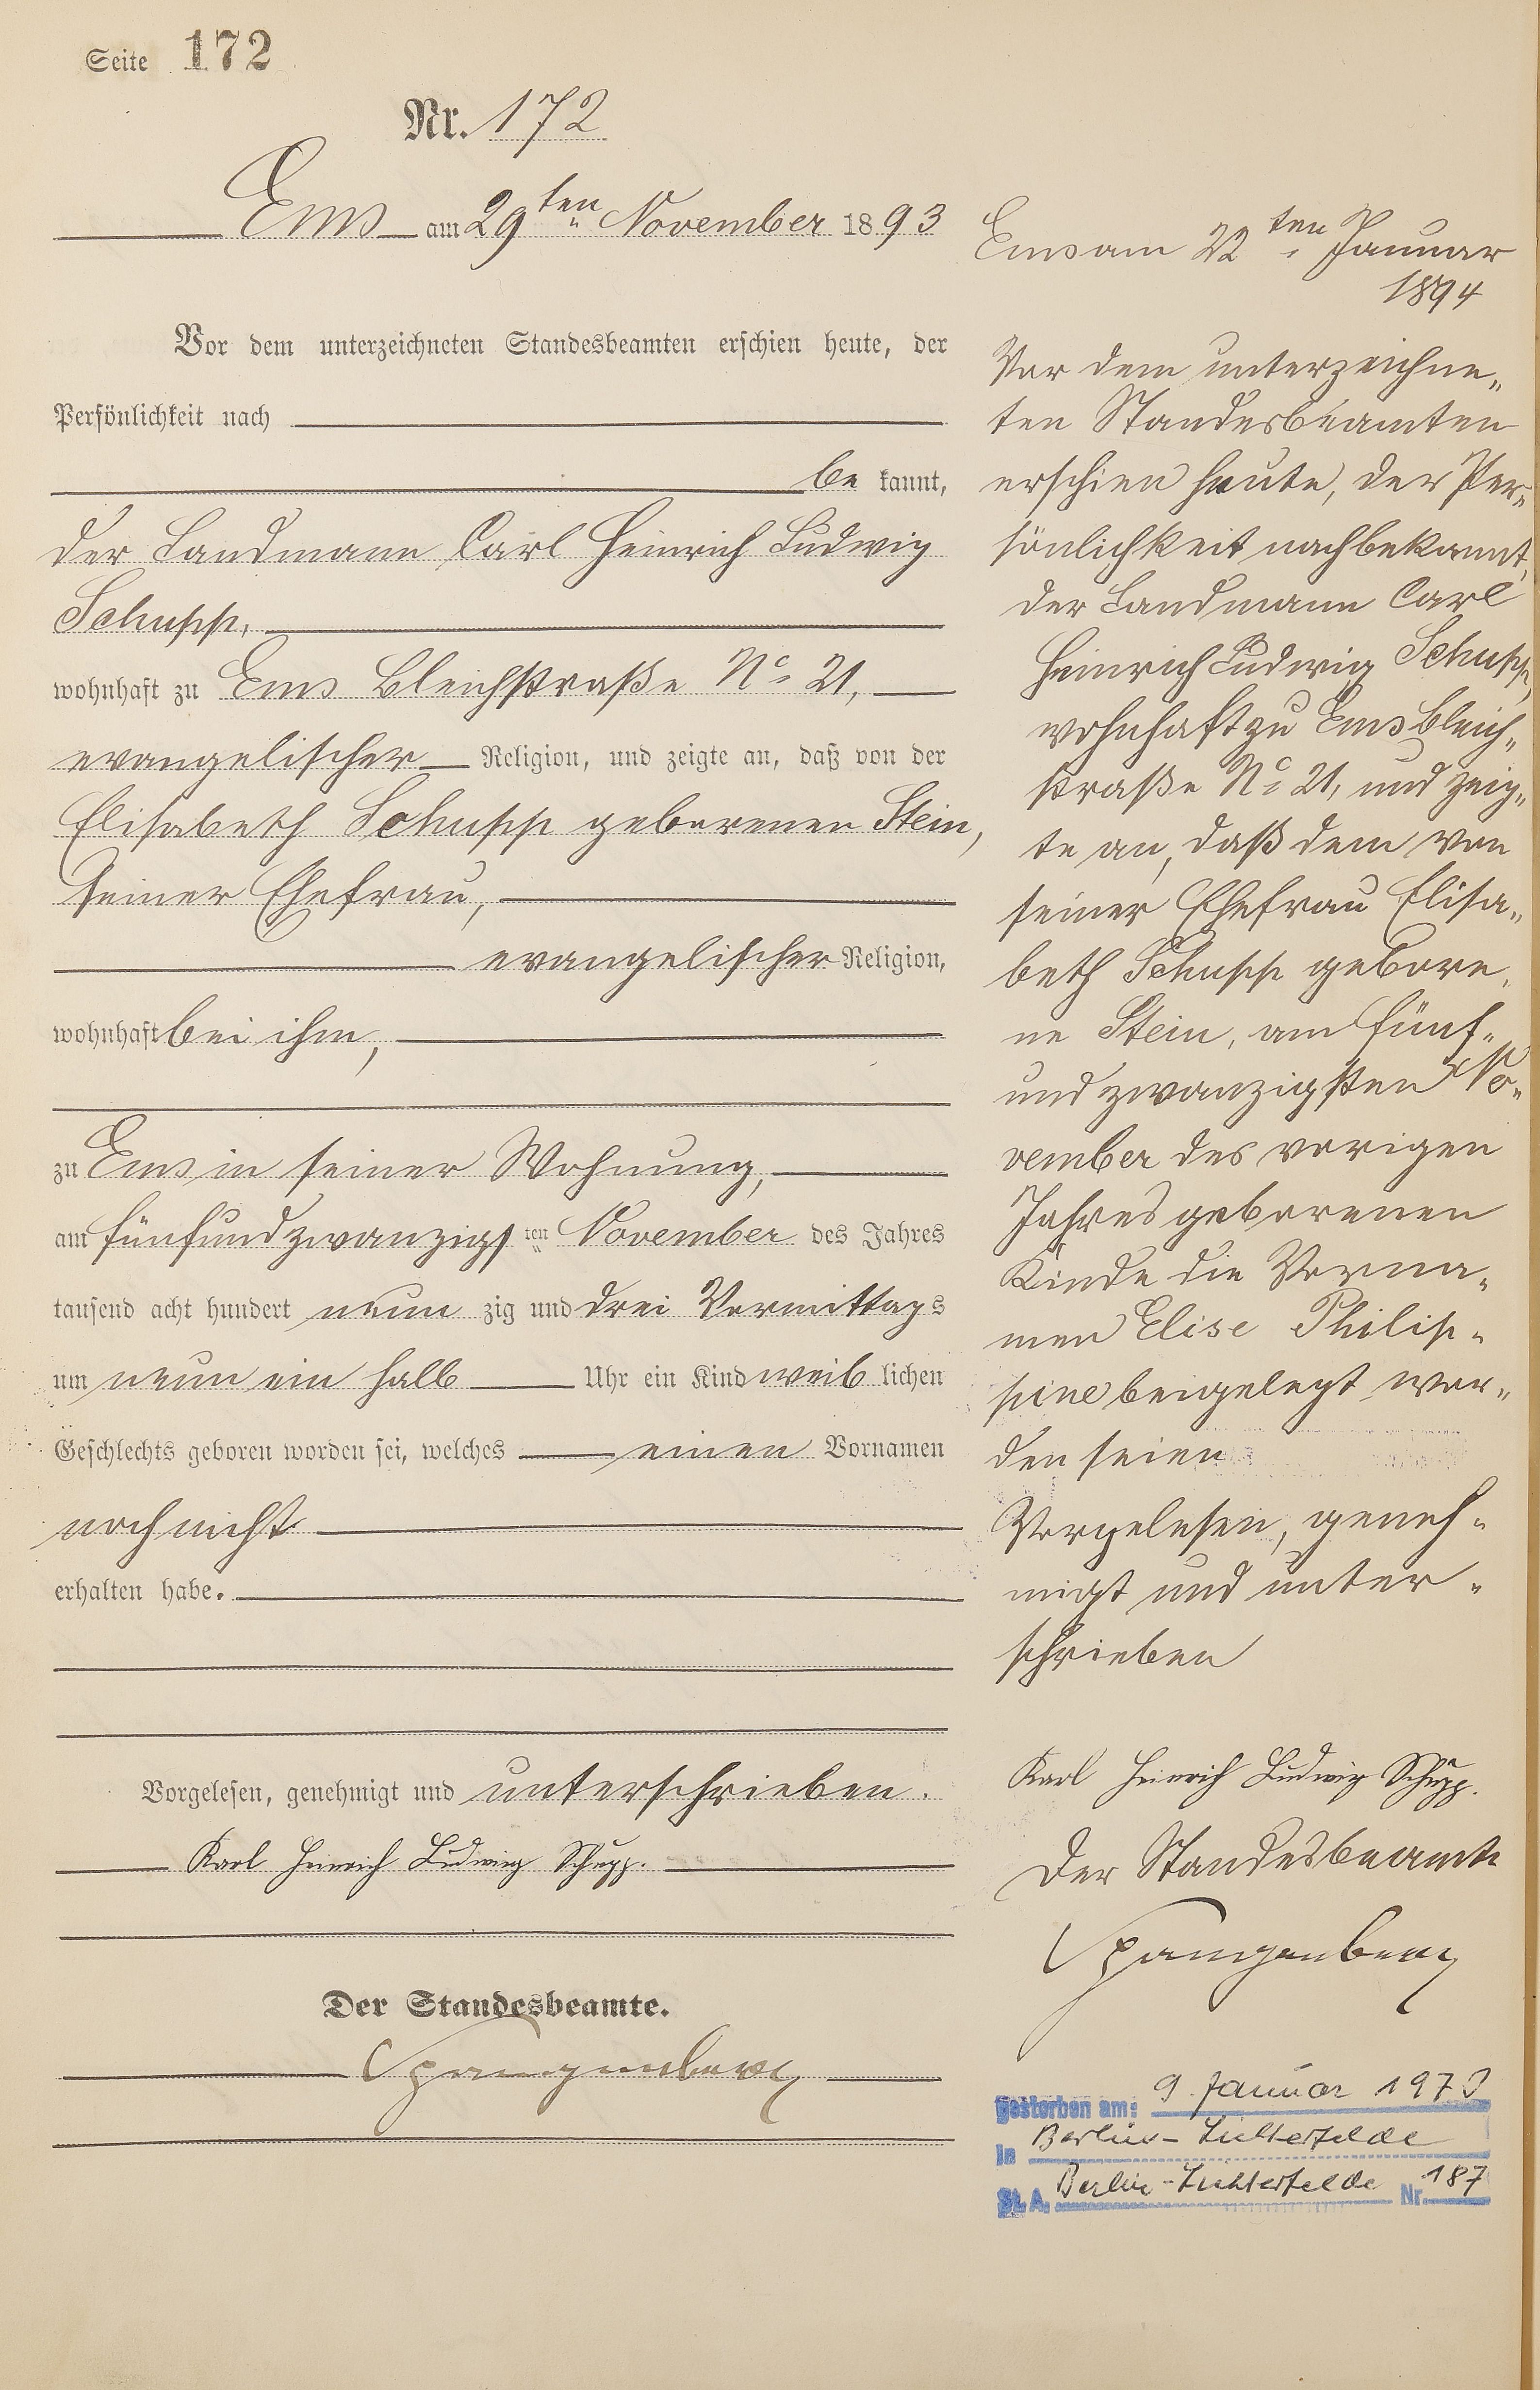 Seite 172
Nr. 172
Ems am 29ten November 1893
Vor dem unterzeichneten Standesbeamten erschien heute, der
Persönlichkeit nach
be kannt,
der Landmann Carl Heinrich Ludwig
Schupp,
wohnhaft zu Ems Bleichstraße No 21,
evangelischer Religion, und zeigte an, daß von der
Elisabeth Schupp geborenen Stein,
seiner Ehefrau,
evangelischer Religion,
wohnhaft bei ihm,
zu Ems in seiner Wohnung,
am fünfundzwanzigsten November des Jahres
tausend acht hundert neun zig und drei Vormittags
um neun ein halb Uhr ein Kind weiblichen
Geschlechts geboren worden sei, welches einen Vornamen
noch nicht
erhalten habe.
Vorgelesen, genehmigt und unterschrieben.
Karl Heinrich Ludwig Schupp.
Der Standesbeamte.
Spangenberg
Ems am 22ten Januar
1894
Vor dem unterzeichne„
ten Standesbeamten
erschien heute, der Per„
sönlichkeit nach bekannt,
der Landmann Carl
Heinrich Ludwig Schupp,
wohnhaft zu Ems Bleich„
straße No 21, und zeig„
te an, daß dem von
seiner Ehefrau Elisa„
beth Schupp gebore„
ne Stein, am fünf„
und zwanzigsten No„
vember des vorigen
Jahres geborenen
Kinde die Vorna„
men Elise Philip„
pine beigelegt wor„
den seien
Vorgelesen, geneh„
migt und unter„
schrieben
Karl Heinrich Ludwig Schupp.
Der Standesbeamte
Spangenberg
gestorben am: 9. Januar
in Berlin-Lichterfelde
St. A. Berlin-Lichterfelde Nr. 187